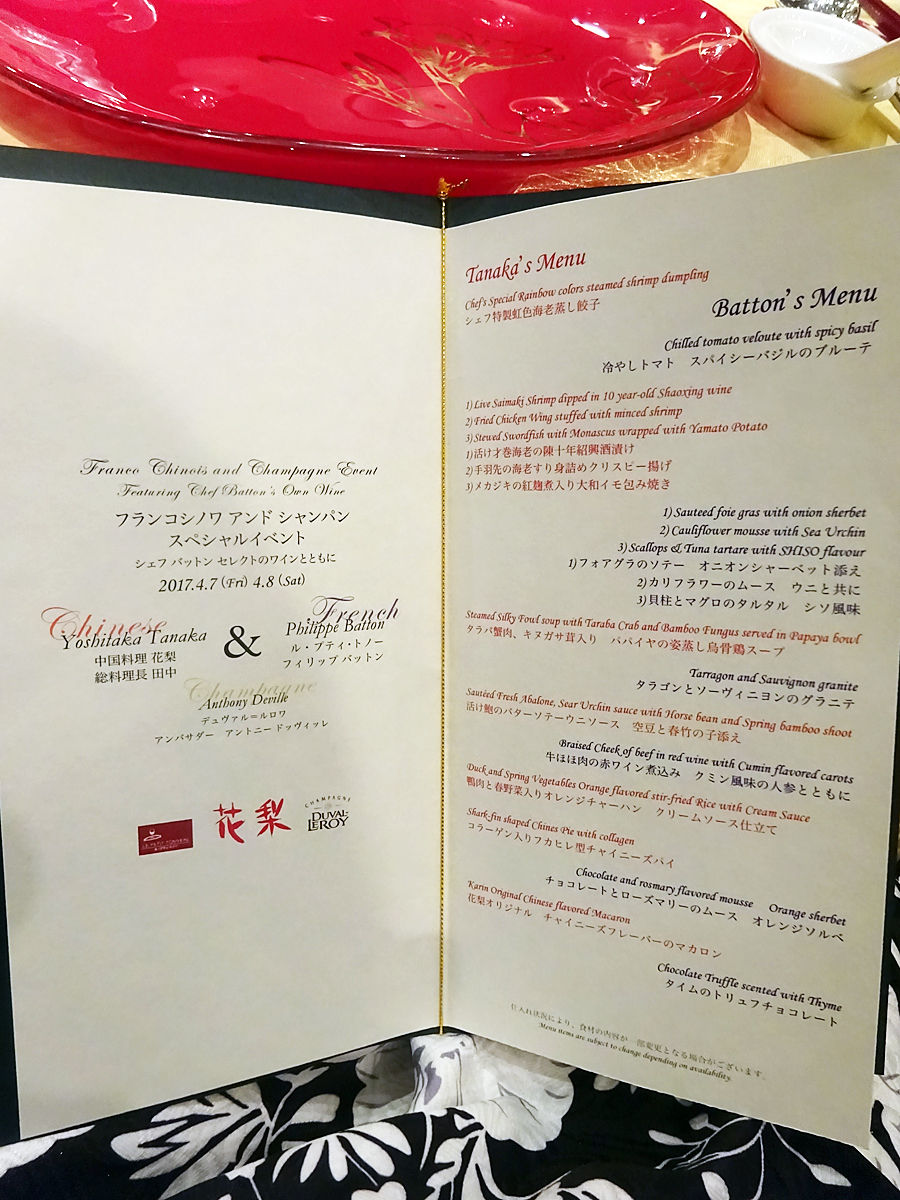 Franco Chinois and Champagne Event
Featuring Chef Batton's Own Wine
フランコシノワ アンド シャンパン
スペシャルイベント
シェフ バットン セレクトのワインとともに
2017.4.7 (Fri) 4.8 (Sat)
Chinese
Yoshitaka Tanaka
中国料理 花梨
総料理長 田中
&
French
Philippe Batton
ル・プティ・トノー
フィリップ バットン
Champagne
Anthony Deville
デュヴァル=ルロワ
アンバサダー アントニー ドゥヴィッレ
LE PETIT TONNEAU
花梨
CHAMPAGNE
DUVAL-
LEROY
Tanaka's Menu
Chef's Special Rainbow colors steamed shrimp dumpling
シェフ特製虹色海老蒸し餃子
Batton's Menu
Chilled tomato veloute with spicy basil
冷やしトマト スパイシーバジルのブルーテ
1) Live Saimaki Shrimp dipped in 10 year-old Shaoxing wine
2) Fried Chicken Wing stuffed with minced shrimp
3) Stewed Swordfish with Monascus wrapped with Yamato Potato
1) 活け才巻海老の陳十年紹興酒漬け
2) 手羽先の海老すり身詰めクリスピー揚げ
3) メカジキの紅麹煮入り大和イモ包み焼き
1) Sauteed foie gras with onion sherbet
2) Cauliflower mousse with Sea Urchin
3) Scallops & Tuna tartare with SHISO flavour
1) フォアグラのソテー オニオンシャーベット添え
2) カリフラワーのムース ウニと共に
3) 貝柱とマグロのタルタル シソ風味
Steamed Silky Foul soup with Taraba Crab and Bamboo Fungus served in Papaya bowl
タラバ蟹肉、キヌガサ茸入り パパイヤの姿蒸し烏骨鶏スープ
Tarragon and Sauvignon granite
タラゴンとソーヴィニヨンのグラニテ
Sautéed Fresh Abalone, Sear Urchin sauce with Horse bean and Spring bamboo shoot
活け鮑のバターソテーウニソース 空豆と春竹の子添え
Braised Cheek of beef in red wine with Cumin flavored carots
牛ほほ肉の赤ワイン煮込み クミン風味の人参とともに
Duck and Spring Vegetables Orange flavored stir-fried Rice with Cream Sauce
鴨肉と春野菜入りオレンジチャーハン クリームソース仕立て
Shark-fin shaped Chines Pie with collagen
コラーゲン入りフカヒレ型チャイニーズパイ
Chocolate and rosmary flavored mousse Orange sherbet
チョコレートとローズマリーのムース オレンジソルベ
Karin Original Chinese flavored Macaron
花梨オリジナル チャイニーズフレーバーのマカロン
Chocolate Truffle scented with Thyme
タイムのトリュフチョコレート
仕入れ状況により、食材の内容が一部変更となる場合がございます。
Menu items are subject to change depending on availability.